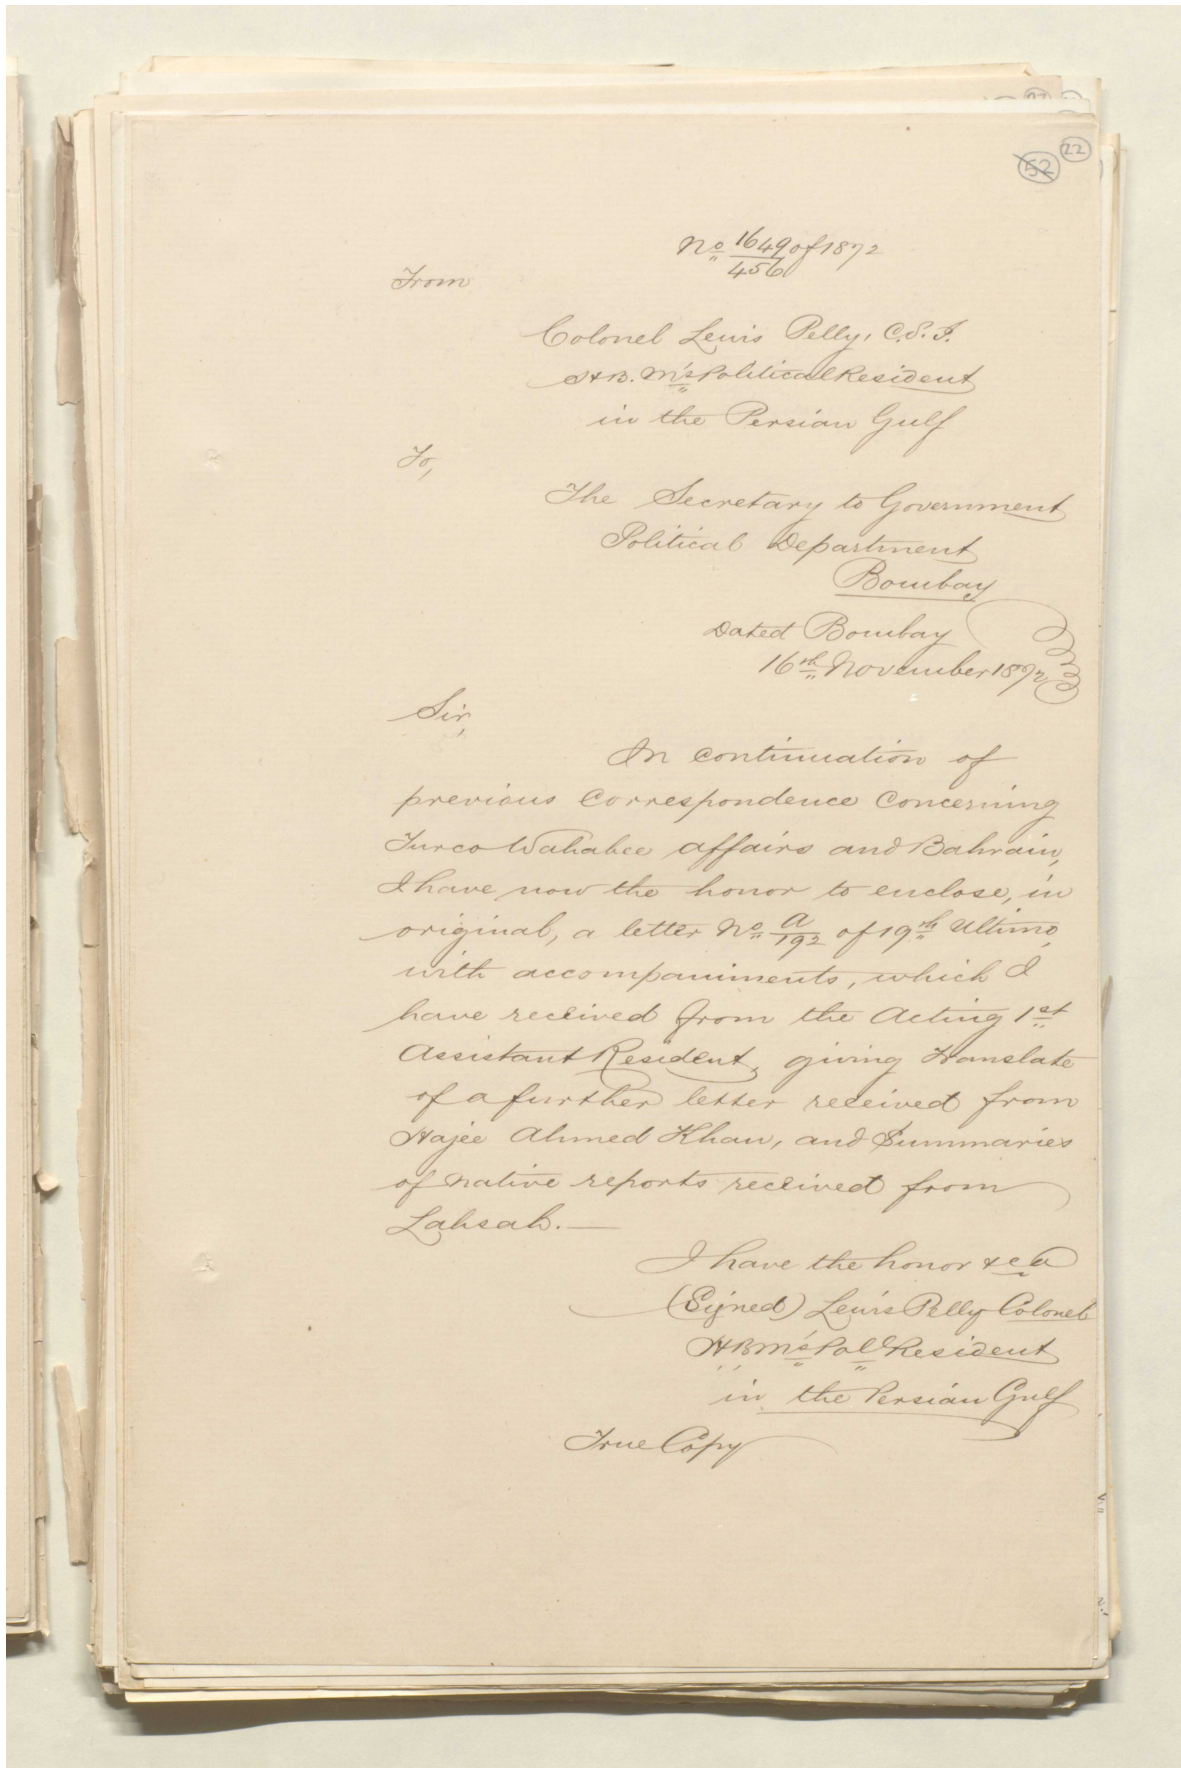 52 22
No 1649 of 1872
456
From
Colonel Lewis Pelly, C.S.I.
H.B.M's Political Resident
in the Persian Gulf
To,
The Secretary to Government
Political Department
Bombay
Dated Bombay
16th November 1872
Sir,
In continuation of
previous correspondence concerning
Turco Wahabee affairs and Bahrain,
I have now the honor to enclose, in
original, a letter No A/192 of 19th Ultimo,
with accompaniments, which I
have received from the Acting 1st
Assistant Resident, giving translate
of a further letter received from
Hajee Ahmed Khan, and Summaries
of native reports received from
Lahsah.—
I have the honor &ca
(Signed) Lewis Pelly Colonel
H.B.M's Pol Resident
in the Persian Gulf
True Copy